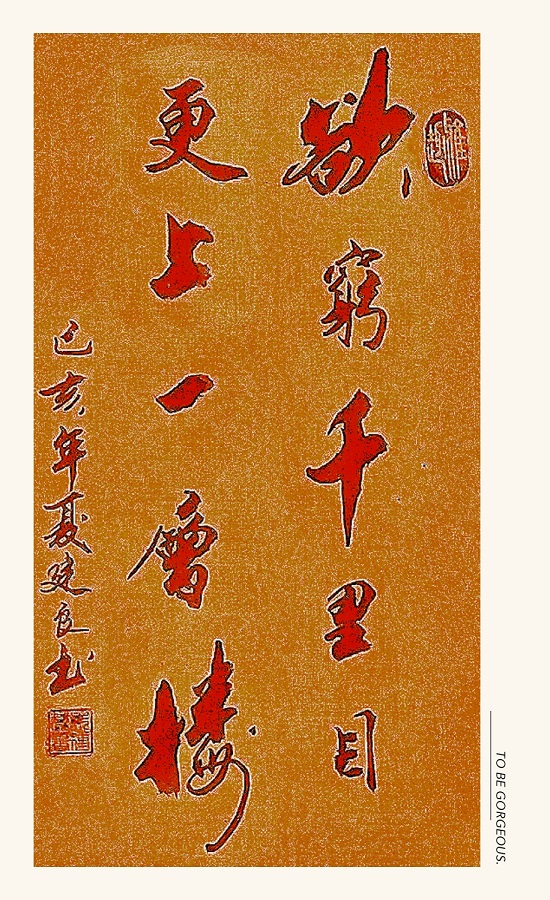 欲窮千里目
更上一層樓
己亥年夏建良书
TO BE GORGEOUS.